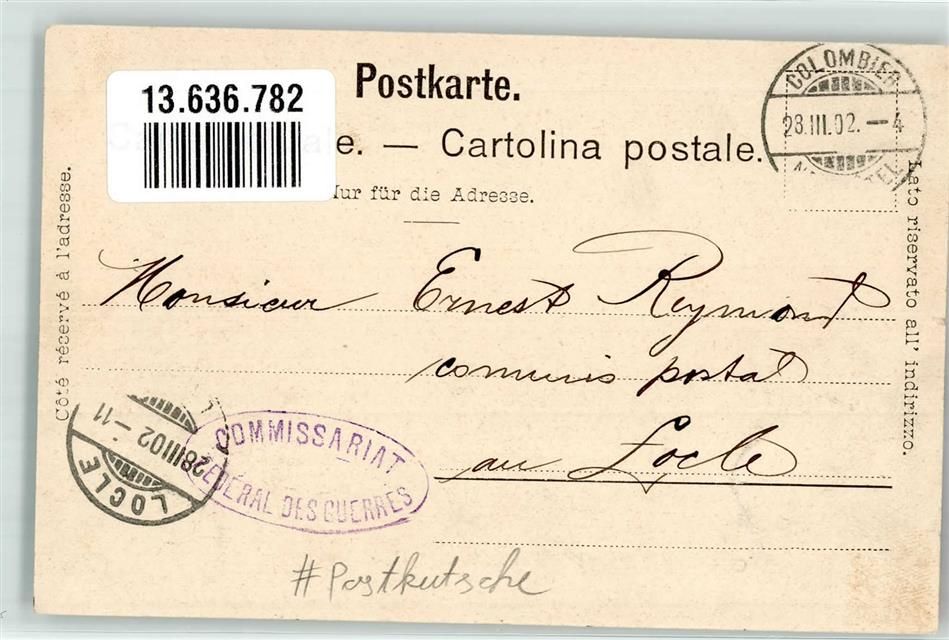 Postkarte.
13.636.782
e. — Cartolina postale.
Nur für die Adresse.
COLOMBIER
28.III.02. — 4
Côté réservé à l'adresse.
Lato riservato all' indirizzo.
Monsieur Ernest Reymond
commis postal
au Locle
LOCLE
28 III 02 – 11
COMMISSARIAT
FÉDÉRAL DES GUERRES
#Postkutsche